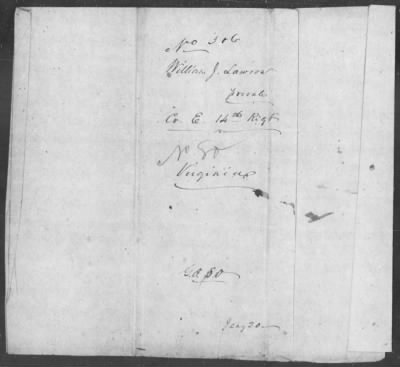 No 306
William J. Lawson
Private
Co E. 14th Rigt
No 50
Virginia
50
Jany 20